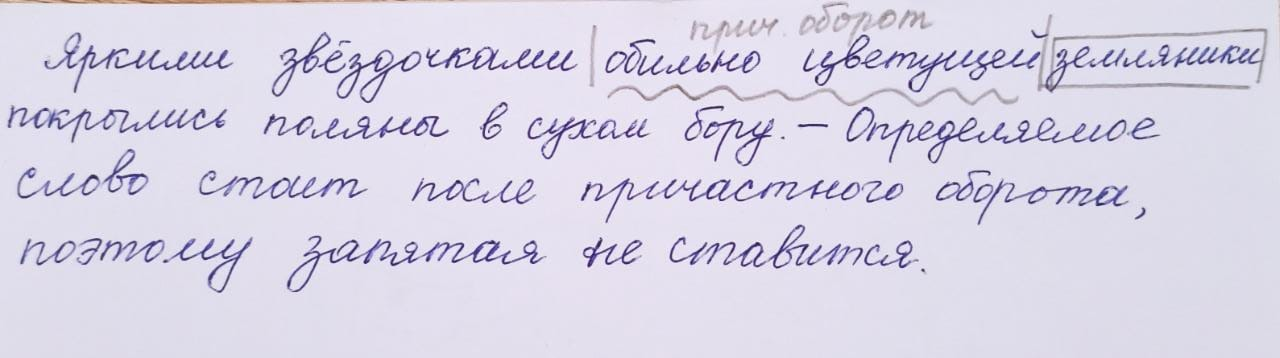 прич. оборот
Яркими звёздочками обильно цветущей земляники
покрылись поляны в сухом бору. – Определяемое
слово стоит после причастного оборота,
поэтому запятая не ставится.